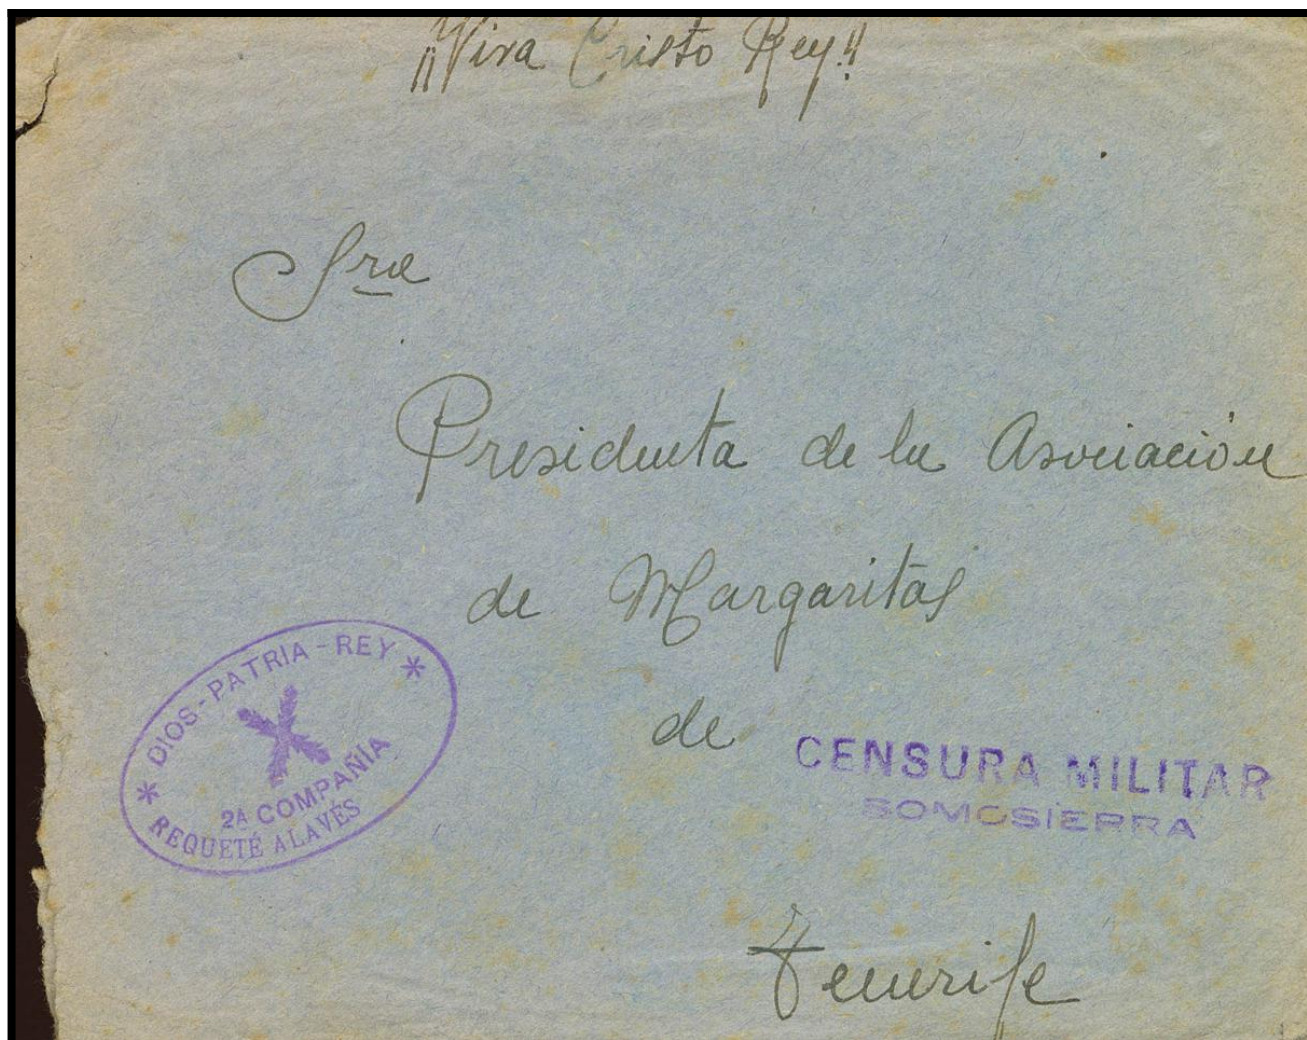 ¡¡Viva Cristo Rey!!
Sra
Presidenta de la Asociación
de Margaritas
de
Tenerife
* DIOS-PATRIA-REY *
2A COMPAÑIA
REQUETÉ ALAVÉS
CENSURA MILITAR
SOMOSIERRA